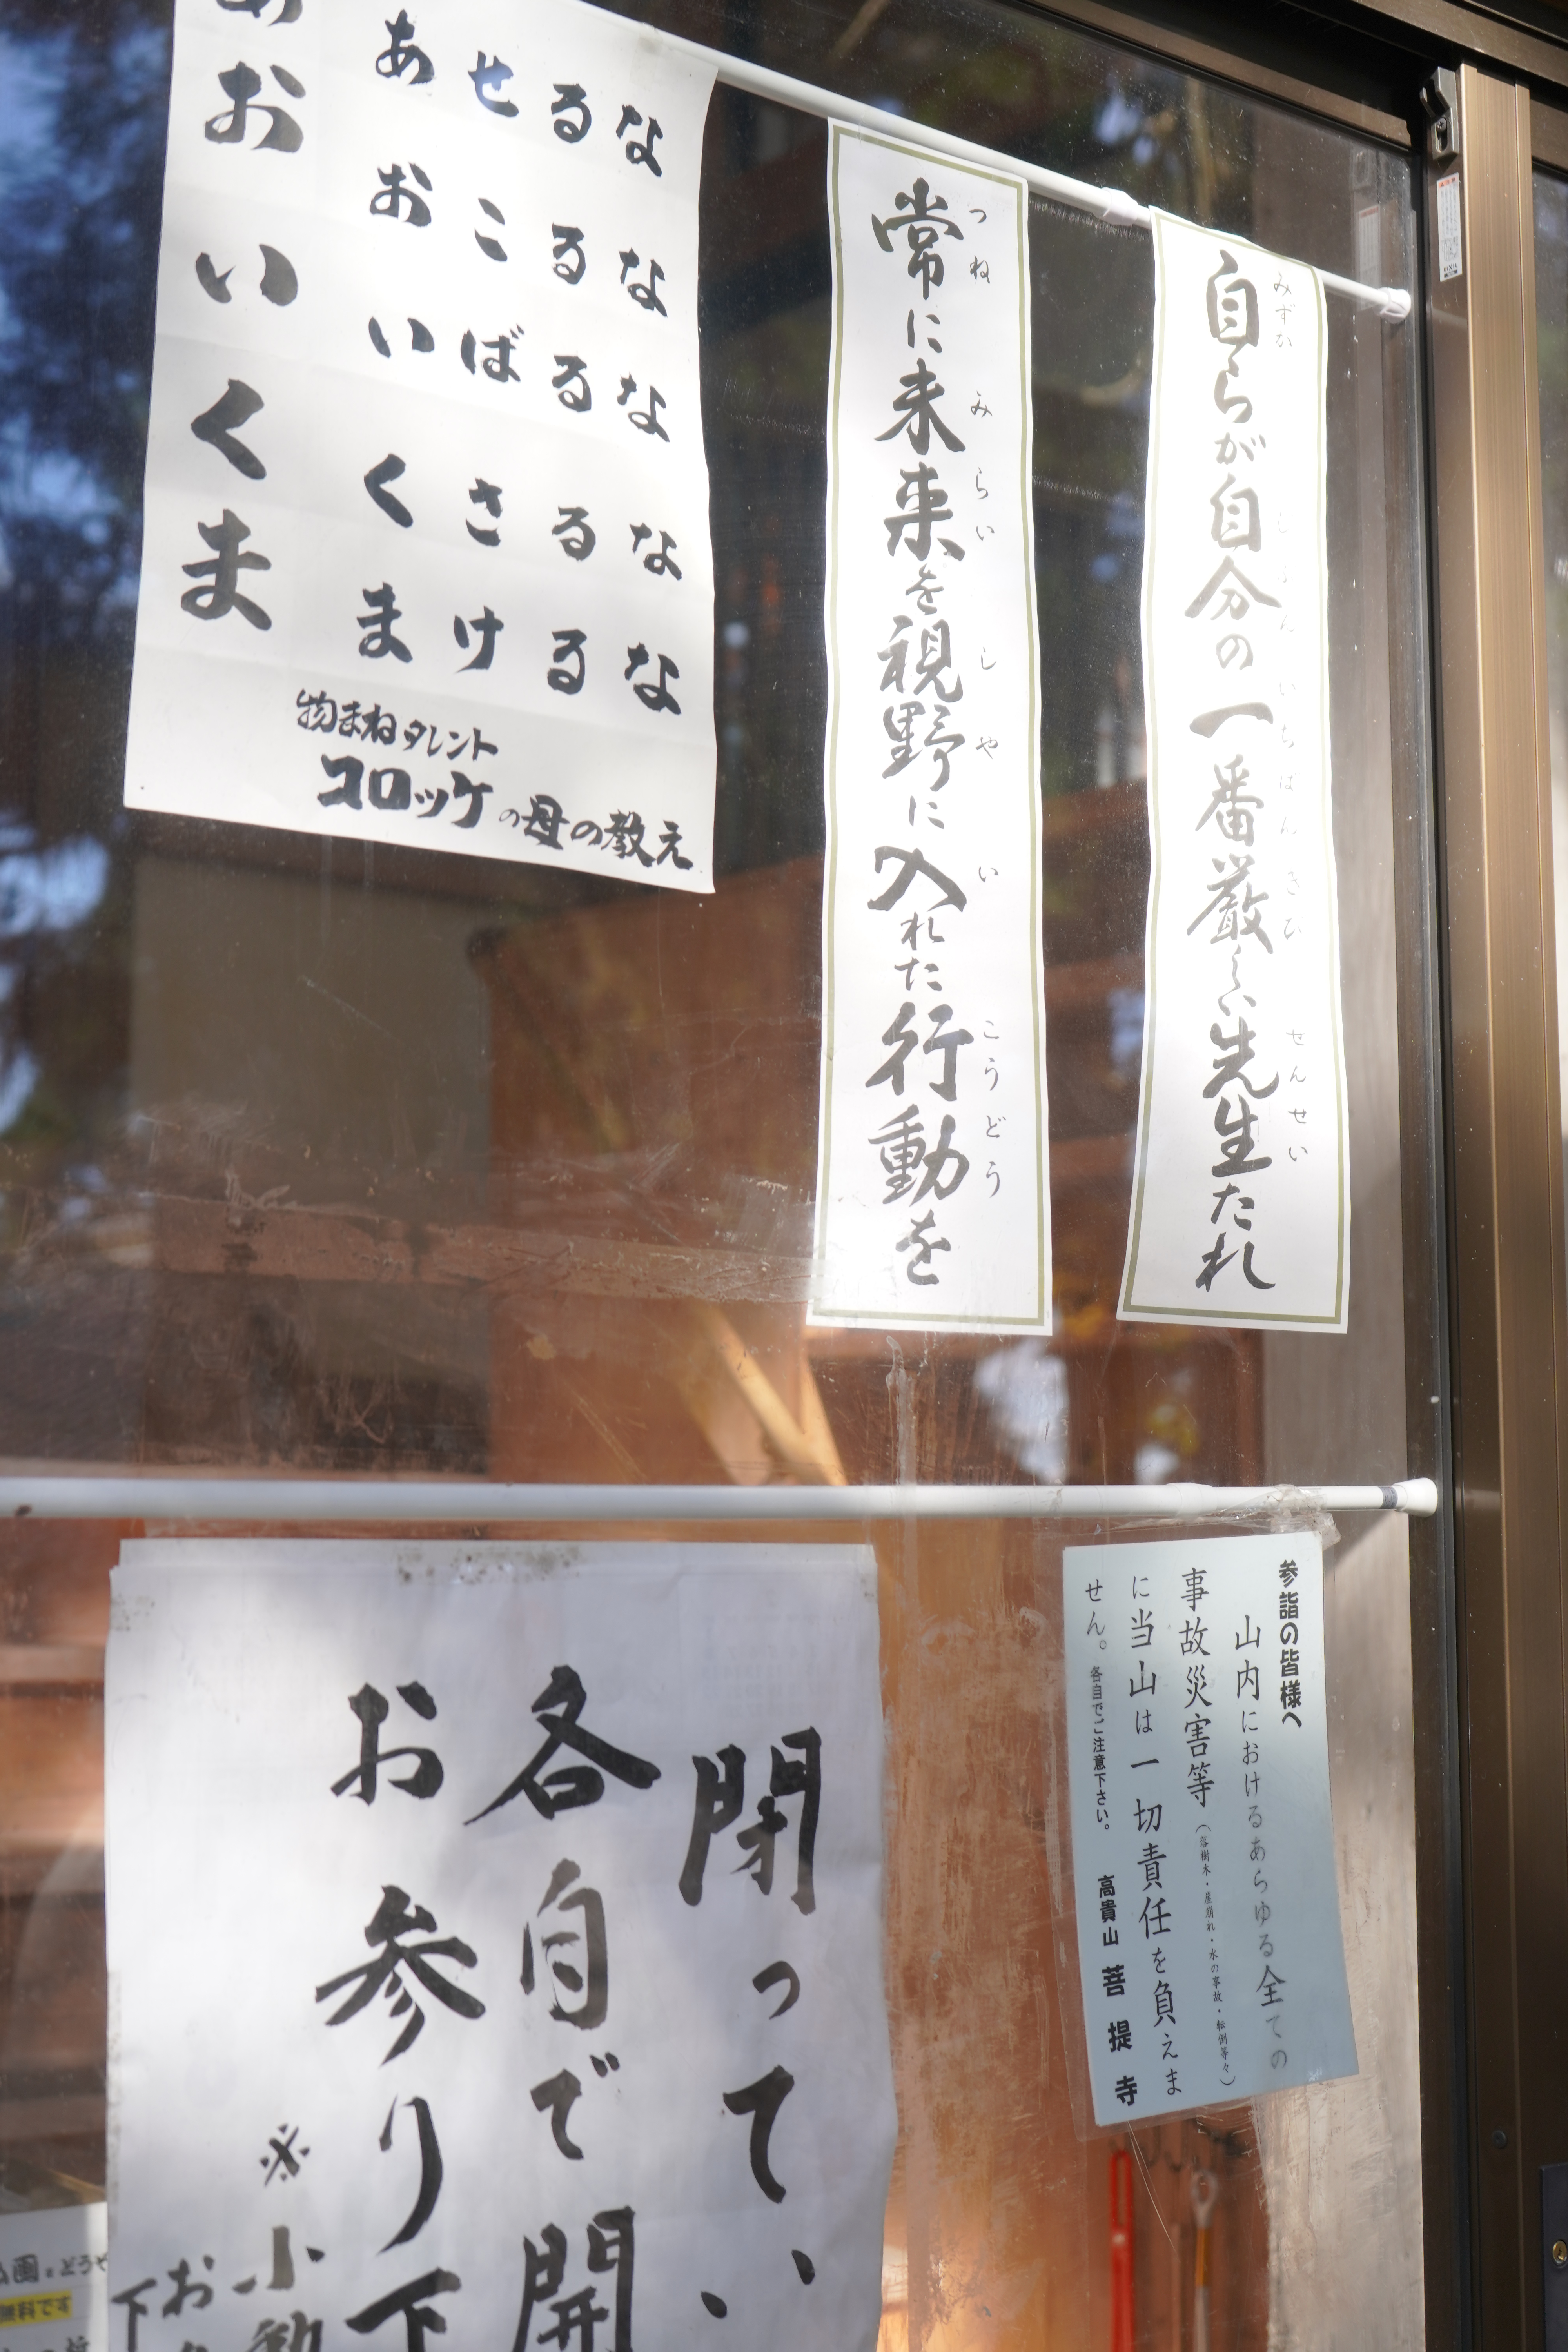 自らが自分の一番厳しい先生たれ
みずか
じぶん
いちばんきび
せんせい
常に未来を視野に入れた行動を
つね
みらい
しや
い
こうどう
あせるな
おこるな
いばるな
くさるな
まけるな
あおいくま
物まねタレント
コロッケの母の教え
参詣の皆様へ
山内におけるあらゆる全ての
事故災害等(落樹木・崖崩れ・水の事故・転倒等々)
に当山は一切責任を負えま
せん。各自でご注意下さい。
高貴山 菩提寺
閉って、い
各自で開
お参り下
※小動
お
下
画をどうや